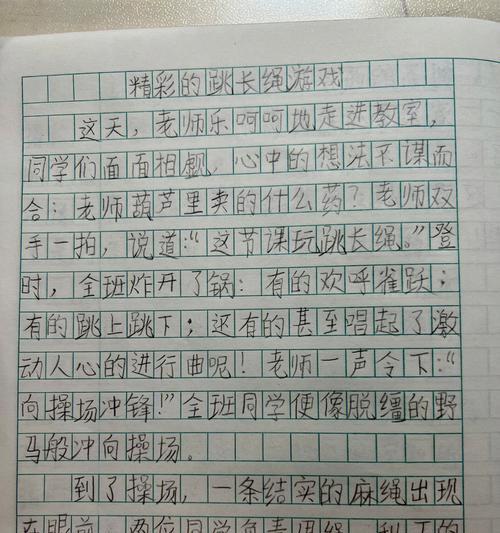 精彩的跳长绳游戏
这天，老师乐呵呵地走进教室，
同学们面面相觑，心中的想法不谋而
合：老师葫芦里卖的什么药？老师双
手一拍，说道：“这节课玩跳长绳。”登
时，全班炸开了锅：有的欢呼雀跃；
有的跳上跳下；还有的甚至唱起了激
动人心的进行曲呢！老师一声令下：“
向操场冲锋！”全班同学便像脱缰的野
马般冲向操场。
到了操场，一条结实的麻绳出现
在眼前，两位同学负责甩绳，剩下的